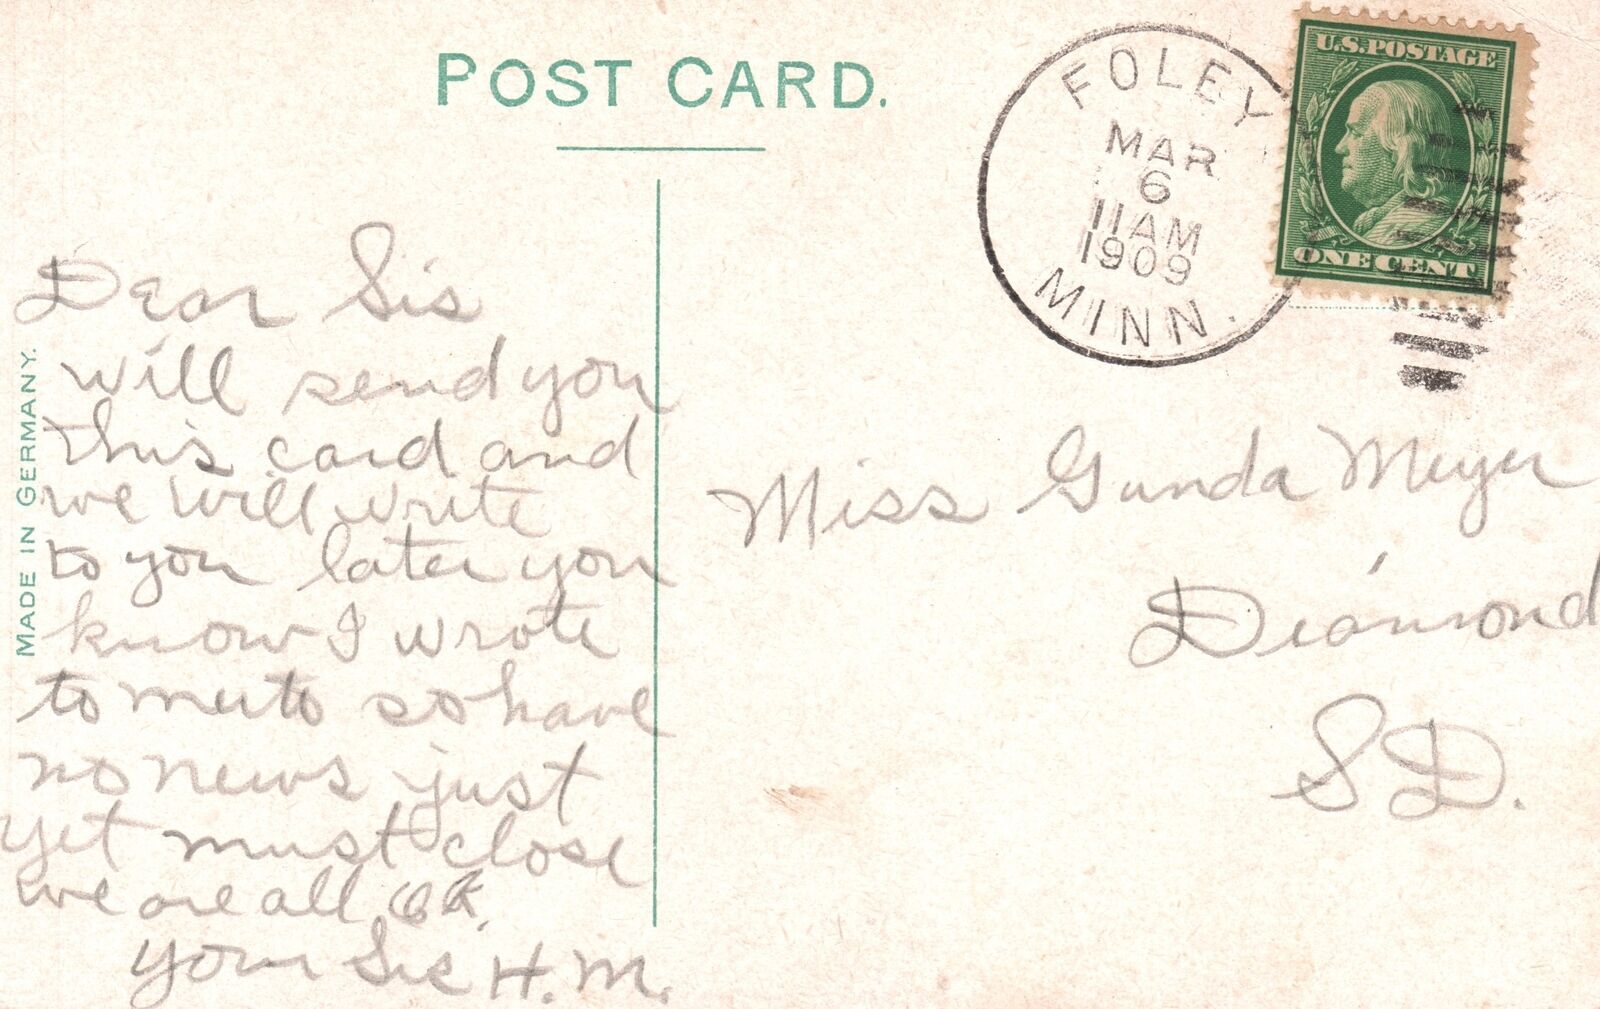 POST CARD.
FOLEY
MAR
6
11 AM
1909
MINN.
U.S. POSTAGE
ONE CENT
MADE IN GERMANY.
Dear Sis
will send you
this card and
we will write
to you later you
know I wrote
to so have
no news just
yet must close
we are all OK.
your Sis H.M.
Miss Gunda Meyer
Diamond
SD.